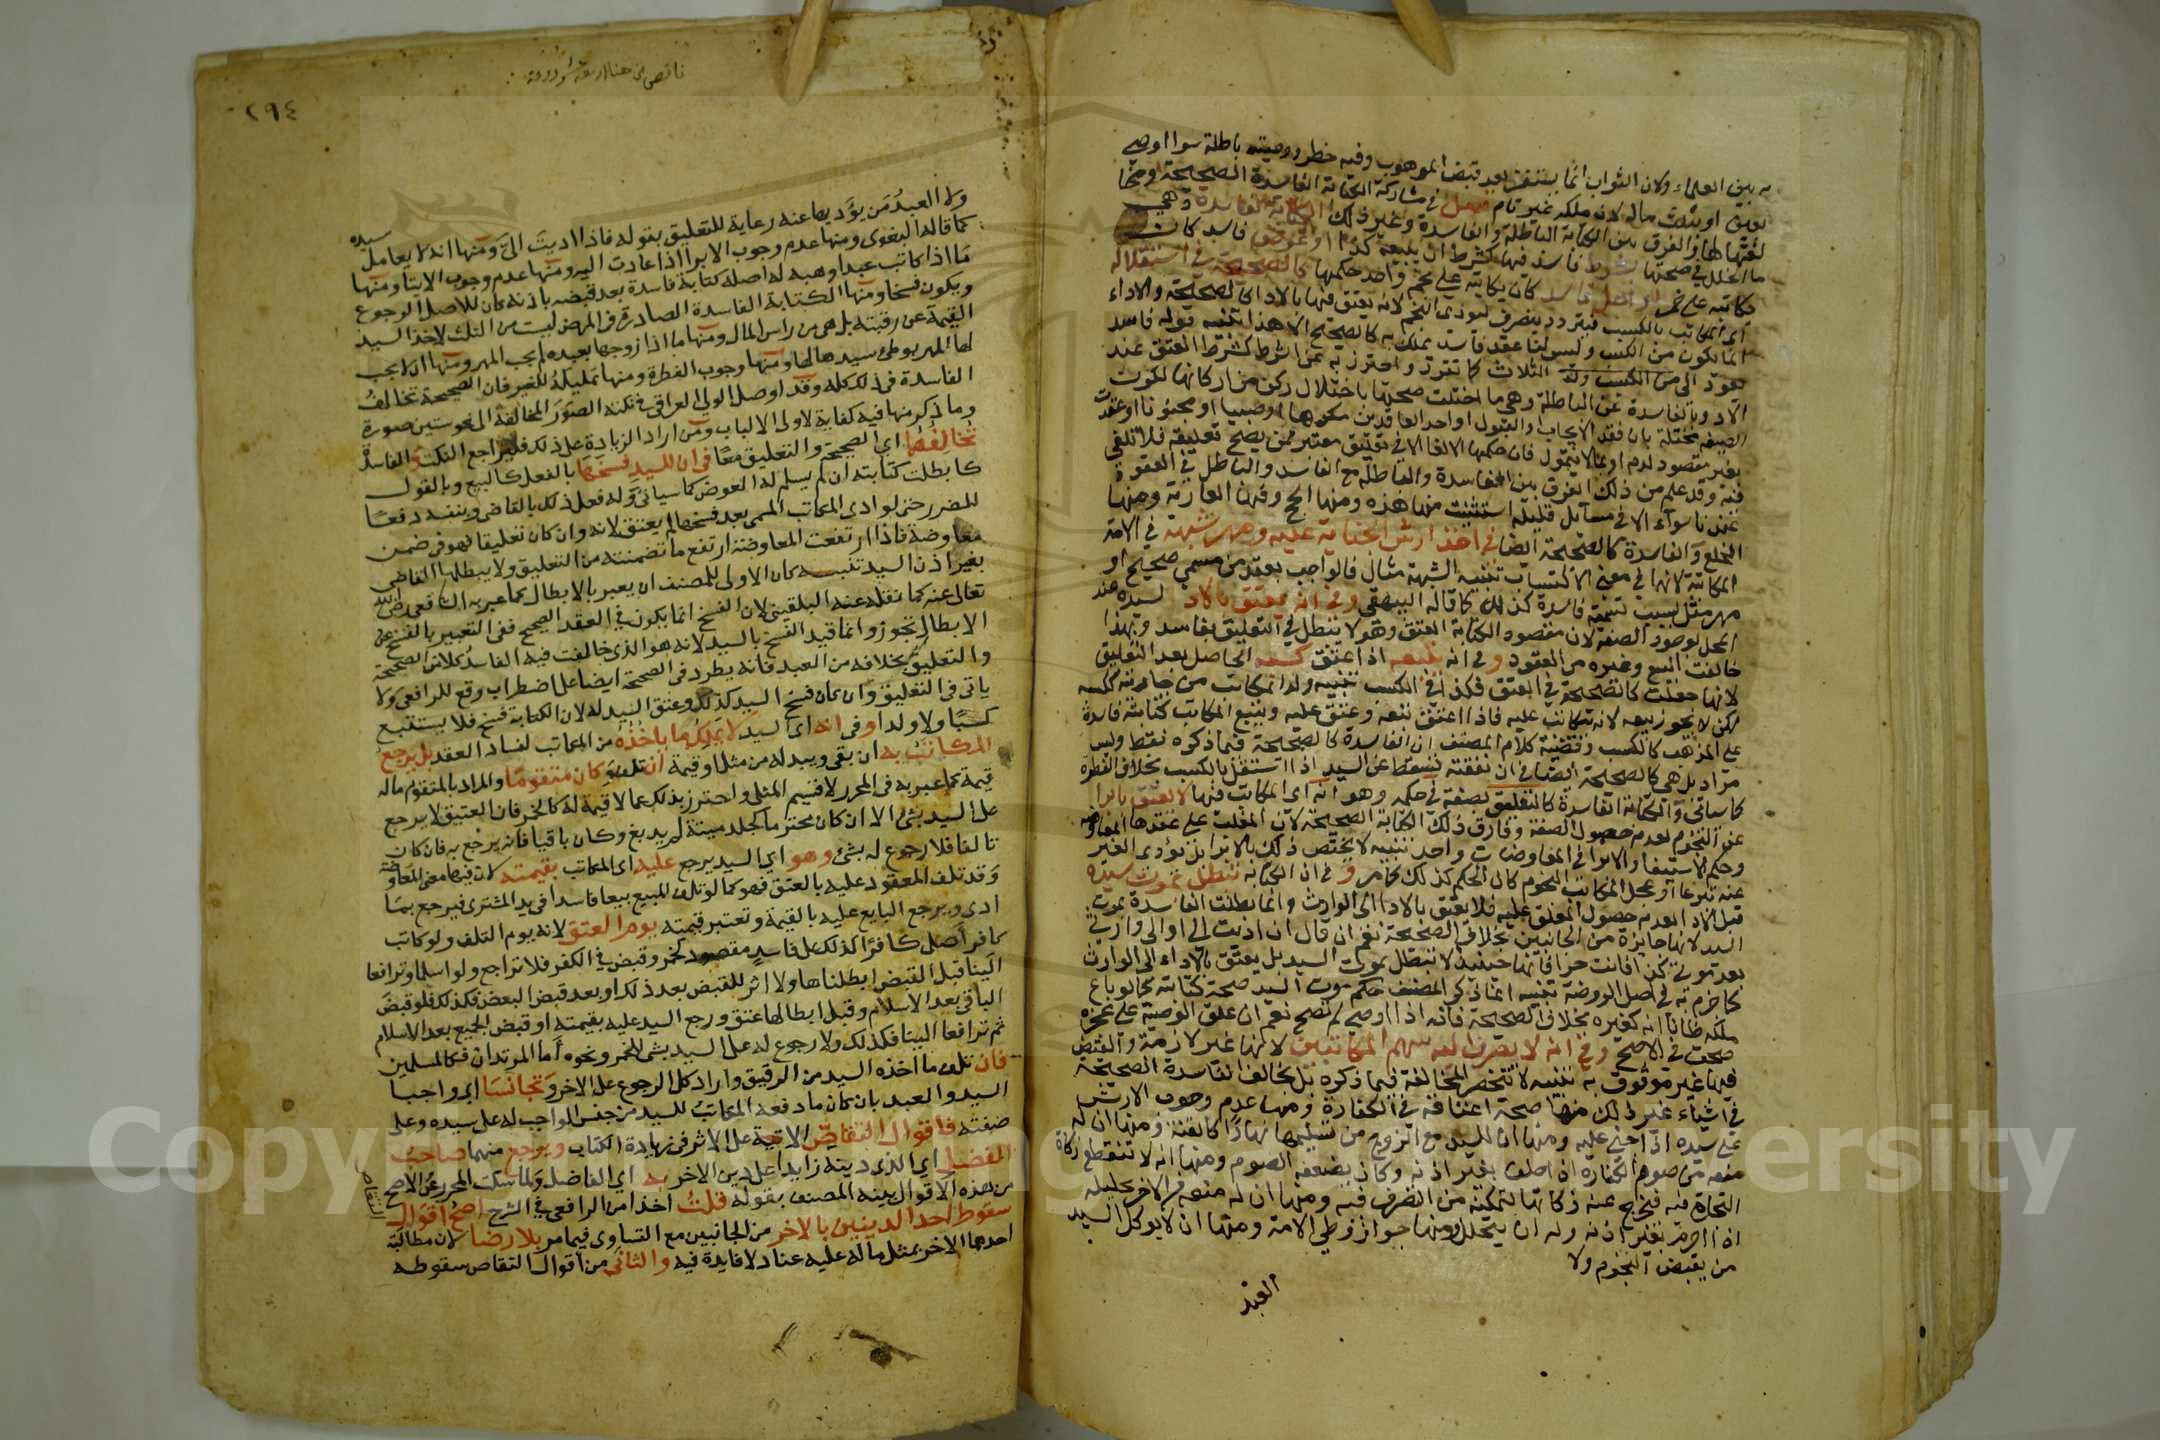 به بين العلماء ولان الثواب انما يستقر بعد قبض الموهوب وفيه خطر ووصيته باطلة سوا اوصي
بعين او بثلث ماله لانه ملكه غير تام فصل في مشاركة الكتابة الفاسدة الصحيحة ومخا
لفتها لها والفرق بين الكتابة الباطلة والفاسدة وغير ذلك الكتابة الفاسدة وهي
ما اختل في صحتها بشرط فاسد فيها كشرط ان يبيعه كذا او عوض فاسد كان
يكاتبه على خمر او اجل فاسد كان يكاتبه على نجم واحد حكمها كالصحيحة في استقلاله
اي المكاتب بالكسب فيتردد ويتصرف ليودي النجم لانه يعتق فيها بالادا كالصحيحة والاداء
انما يكون من الكسب وليس لنا عقد فاسد يملك به كالصحيح الا هذا تنبيه قوله فاسد
يعود الى من الكسب ولد الثلاث كما تقرر واحترز به عن الشرط كشرط العتق عند
الادا وبالفاسدة عن الباطلة وهي ما اختلت صحتها باختلال ركن من اركانها لكون
الصيغه مختلة بان فقد الايجاب والقبول او احد العاقدين مكرها او صبيا او مجنونا او عقدت
بغير مقصود لدم او بما لا يتمول فان حكمها الالغا الا في تعليق معتبر ممن يصح تعليقه فلا تلغي
فيه وقد علم من ذلك الفرق بين الفاسدة والباطلة مع الفاسد والباطل في العقود
عندنا سواء الا في مسائل قليلة استثنيت منها هذه ومنها الحج ومنها العارية ومنها
الخلع والفاسدة كالصحيحة ايضا في اخذ ارش الجناية عليه ومهر شبهة في الامة
المكاتبة لانها في معنى الاكتساب تنبيه الشبهة مثال فالواجب بعقد من مسمي صحيح او
مهر مثل بسبب تسمية فاسدة كذلك كما قاله البيهقي وفي انه يعتق بالادا لسيده عند
المحل لوجود الصفة لان مقصود الكتابة العتق وهو لا يبطل في التعليق بفاسد وبهذا
خالفت البيع وغيره من العقود وفي انه يتبعه اذا عتق كسبه الحاصل بعد التعليق
لانها جعلت كالصحيحة في العتق فكذا في الكسب تنبيه ولد المكاتب من جاريته ككسبه
لكن لا يجوز بيعه لانه تكاتب عليه فاذا اعتق تبعه وعتق عليه ويتبع المكاتب كتابة فاسدة
على المذهب كالكسب وقضية كلام المصنف ان الفاسدة كالصحيحة فيما ذكره فقط وليس
مرادا بل هي كالصحيحة ايضا في ان نفقته تسقط عن السيد اذا استقل بالكسب بخلاف الفطرة
كما سياتي والكتابة الفاسدة كالتعليق بصفة في حكمه وهو انه اي المكاتب فيها لا يعتق بابرا
عن النجوم لعدم حصول الصفة وفارق ذلك الكتابة الصحيحة لان المغلب على عقدها المعاوضه
وحكم الاستيفا والابرا في المعاوضات واحد تنبيه لا يختص ذلك بالابرا بل يؤدي الغير
عنه تبرعا او عجل المكاتب النجوم كان الحكم كذلك كما مر و في ان الكتابة تبطل بموت سيده
قبل الادا لعدم حصول المعلق عليه فلا يعتق بالادا الى الوارث وانما بطلت الفاسدة بموت
السيد لانها جايزة من الجانبين بخلاف الصحيحة نعم ان قال ان اديت الي او الى وارثي
بعد موتي كذا فانت حر فانها حينئذ لا تبطل بموت السيد بل يعتق بالاداء الى الوارث
كما جزم به في اصل الروضة تنبيه انما ذكر المصنف حكم موت السيد صحة كتابته كما لو باع
ملكه ظانا انه كغيره بخلاف الصحيحة فانه اذا اوصى لم تصح نعم ان علق الوصية على عجزه
صحت في الاصح وفي انه لا يصرف له سهم المكاتبين لانها غير لازمة والقبض
فيها غير موثوق به تنبيه لا تنحصر المخالفة فيما ذكره بل يخالف الفاسدة الصحيحة
في اشياء غير ذلك منها صحة اعتاقه في الكفارة ومنها عدم وجوب الارش
على سيده اذا جني عليه ومنها ان للسيد مع الزوج من تسليمها نهارا كالقنة ومنها ان له
منعه من صوم الكفارة اذا حلف بغير اذنه وكان يضعفه الصوم ومنها انه لا تنقطع زكاة
التجارة فيه فتخرج عنه زكاتها لتمكنه من التصرف فيه ومنها ان له منعه من الاخر تحليله
اذا احرم بغير اذنه وله ان يتحلل ومنها جواز وطي الامة ومنها ان لا يوكل السيد
من يقبض النجوم ولا
العبد
ناقص من هنا
٢٩٤
ولا العبد من يؤديها عنه رعاية للتعليق بقوله فاذا اديت الى ومنها انه لا يعامل سيده
كما قاله البغوي ومنها عدم وجوب الابرا اذا عادت اليه ومنها عدم وجوب الايتا ومنها
ما اذا كاتب عبدا وهبه له اصله كتابة فاسدة بعد قبضه باذنه كان للاصل الرجوع
ويكون فسخا ومنها الكتابة الفاسدة الصادرة في المرض ليست من الثلث لاخذ السيد
القيمة عن رقبته بل هي من راس المال ومنها ما اذا زوجها بعبده لم يجب المهر ومنها ان لا يجب
لها المهر بوطئ سيدها لها ومنها وجوب الفطرة ومنها تمليكه للغير فان الصحيحة تخالف
الفاسدة في ذلك كله وقد اوصل الولي العراقي في نكته الصور المخالفة الى نحو ستين صورة
وما ذكر منها فيه كفاية لاولى الالباب ومن اراد الزيادة على ذلك فليراجع النكت والفاسدة
تخالفها اي الصحيحة والتعليق معا في ان للسيد فسخها بالفعل كالبيع وبالقول
كابطلت كتابته ان لم يسلم له العوض كما سياتي وله فعل ذلك بالقاضي وبنفسه دفعا
للضرر حتى لو ادى المكاتب المسمى بعد فسخها لم يعتق لانه وان كان تعليقا فهو في ضمن
معاوضة فاذا ارتفعت المعاوضة ارتفع ما تضمنته من التعليق ولا يبطلها القاضي
بغير اذن السيد تنبيه كان الاولى للمصنف ان يعبر بالابطال كما عبر به الشافعي رضي الله
تعالى عنه كما نقله عنه البلقيني لان الفسخ انما يكون في العقد الصحيح ففى التعبير بالفسخ عن
الابطال تجوز وانما قيد الفسخ بالسيد لانه هو الذى خالفت فيه الفاسدة كلا من الصحيحة
والتعليق بخلافه من العبد فانه يطرد فى الصحيحة ايضا على اضطراب وقع للرافعي ولا
ياتي فى التعليق وان كان فسخ السيد كذلك وعتق السيد له لان الكتابة فسخ فلا يستتبع
كسبا ولا ولدا وفى انه اي السيد لا يملك ما ياخذه من المكاتب لفساد العقد بل يرجع
المكاتب به ان بقى وببدله من مثل او قيمة ان تلف وكان متقوما والمراد بالمتقوم ماله
قيمة كما عبر به فى المحرر لا قسيم المثلي واحترز بذلك عما لا قيمة له كالخمر فان العتيق لا يرجع
على السيد بشئ الا ان كان محترما كجلد ميتة لم يدبغ وكان باقيا فانه يرجع به فان كان
تالفا فلا رجوع له بشئ وهو اي السيد يرجع عليه اي المكاتب بقيمته لان فيها معنى المعاوضة
وقد تلف المعقود عليه بالعتق فهو كما لو تلف المبيع بيعا فاسدا فى يد المشترى فيرجع بما
ادى ويرجع البايع عليه بالقيمة وتعتبر قيمته يوم العتق لانه يوم التلف ولو كاتب
كافر اصل كافرا كذلك على فاسد مقصود كخمر وقبض في الكفر فلا تراجع ولو اسلما وترافعا
الينا قبل القبض ابطلناها ولا اثر للقبض بعد ذلك او بعد قبض البعض فكذلك فلو قبض
الباقي بعد الاسلام وقبل ابطالها عتق ورجع السيد عليه بقيمته او قبض الجميع بعد الاسلام
ثم ترافعا الينا فكذلك ولا رجوع له على السيد بشي للخمر ونحوه اما المرتدان فكالمسلمين
فان تلف ما اخذه السيد من الرقيق واراد كل الرجوع على الاخر وتجانسا اي واجبا
السيد والعبد بان كان ما دفعه المكاتب للسيد من جنس الواجب له على سيده وعلى
صفته فاقوال التقاص الاتية على الاثر فى زيادة الكتاب ويرجع منهما صاحب
الفضل اي الذى دينه زايدا على دين الاخر به اي الفاضل ولما سكت المحرر عن الاصح
من هذه الاقوال بينه المصنف بقوله قلت اخذا من الرافعي في الشرح اصح اقوال
التقاص
سقوط احد الدينين بالاخر من الجانبين مع التساوى فيما مر بلا رضا لان مطالبة
احدهما الاخر بمثل ماله عليه عناد لا فايدة فيه والثانى من اقوال التقاص سقوطه
Copyright © King Saud University